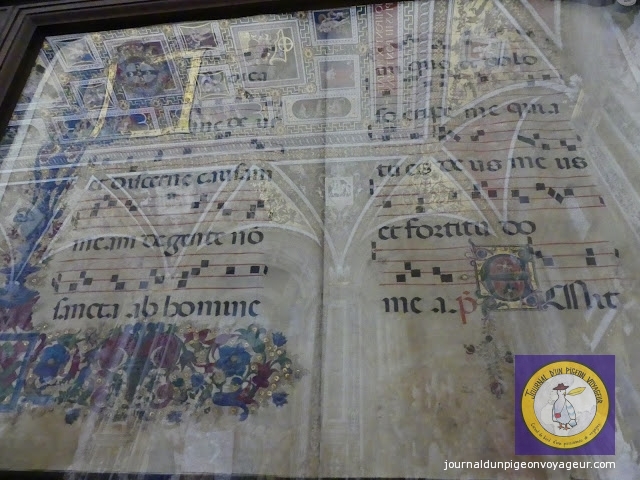 dica
me de us
et discerne causam
meam de gente nō
sancta ab homine
iniquo et dolo
so eripe me quia
tu es de us me us
et fortitu do
me a.
JOURNAL D'UN PIGEON VOYAGEUR
journaldunpigeonvoyageur.com